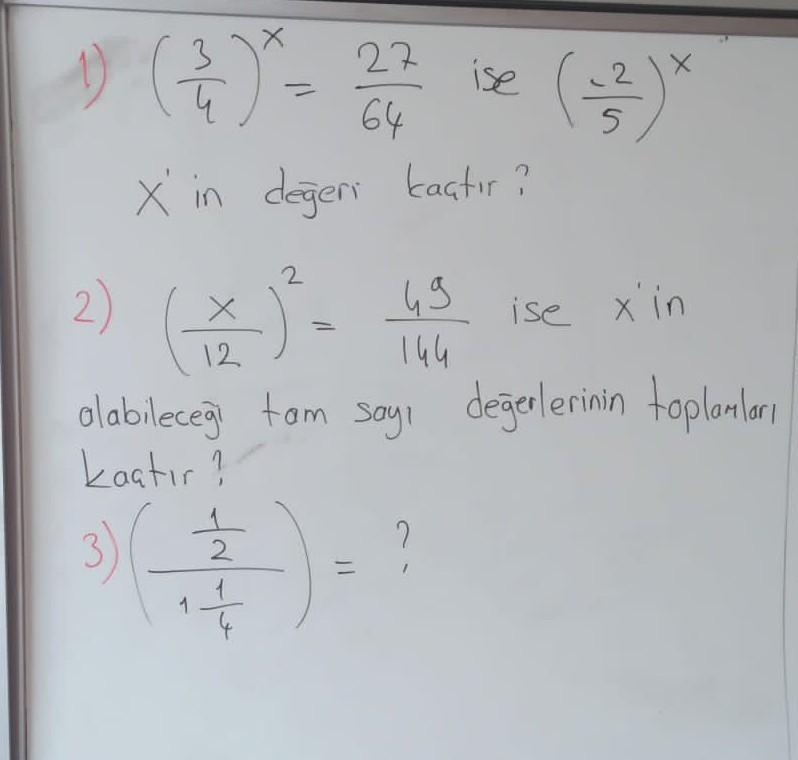 1) (3/4)^x = 27/64 ise (-2/5)^x
x'in değeri kaçtır?
2) (x/12)^2 = 49/144 ise x'in
olabileceği tam sayı değerlerinin toplamları
kaçtır?
3) ((1/2)/(1 1/4)) = ?